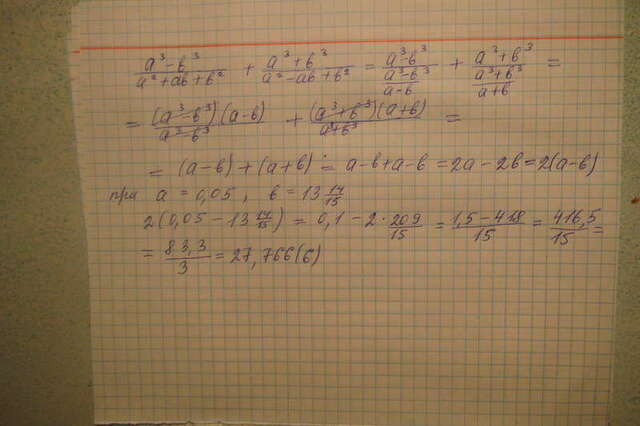 (a³-b³)/(a²+ab+b²) + (a³+b³)/(a²-ab+b²) = (a³-b³)/((a³-b³)/(a-b)) + (a³+b³)/((a³+b³)/(a+b)) =
= (a³-b³)(a-b)/(a³-b³) + (a³+b³)(a+b)/(a³+b³) =
= (a-b)+(a+b) = a-b+a-b = 2a-2b = 2(a-b)
при a = 0,05, b = 13 14/15
2(0,05 - 13 14/15) = 0,1 - 2·209/15 = (1,5-418)/15 = 416,5/15 =
= 83,3/3 = 27,766(6)